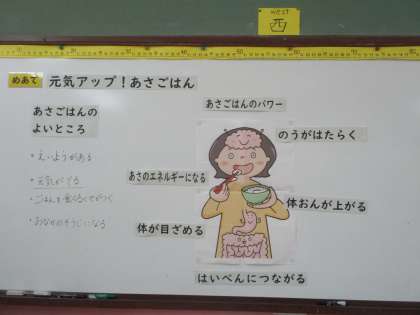 west
西
めあて 元気アップ！あさごはん
あさごはんの
よいところ
・えいようがある
・元気がでる
・ごはんを食べるくせがつく
・おなかのそうじになる
あさごはんのパワー
のうがはたらく
あさのエネルギーになる
体おんが上がる
体が目ざめる
はいべんにつながる